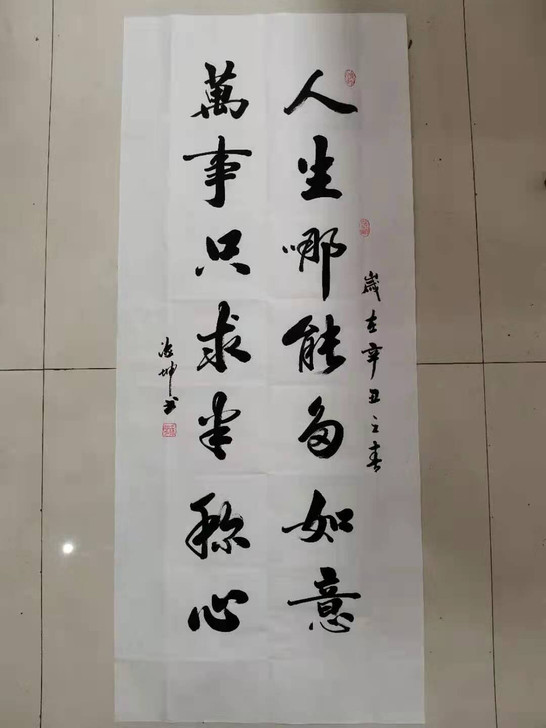 歲在辛丑之春
人生哪能多如意
萬事只求半稱心
坤書